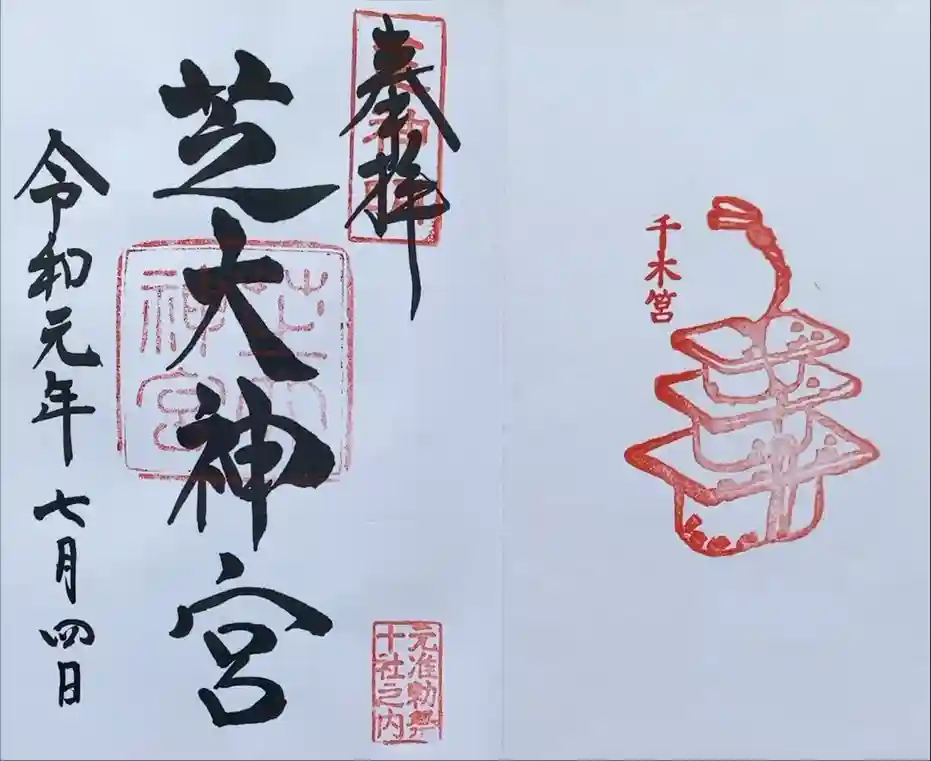 千木筥
奉拝
元准勅祭
十社之内
芝大神宮
芝大
神宮
令和元年七月四日